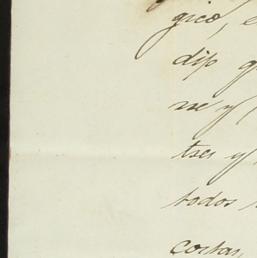 gico, e
dip q
me y
tres y
todos
costas,